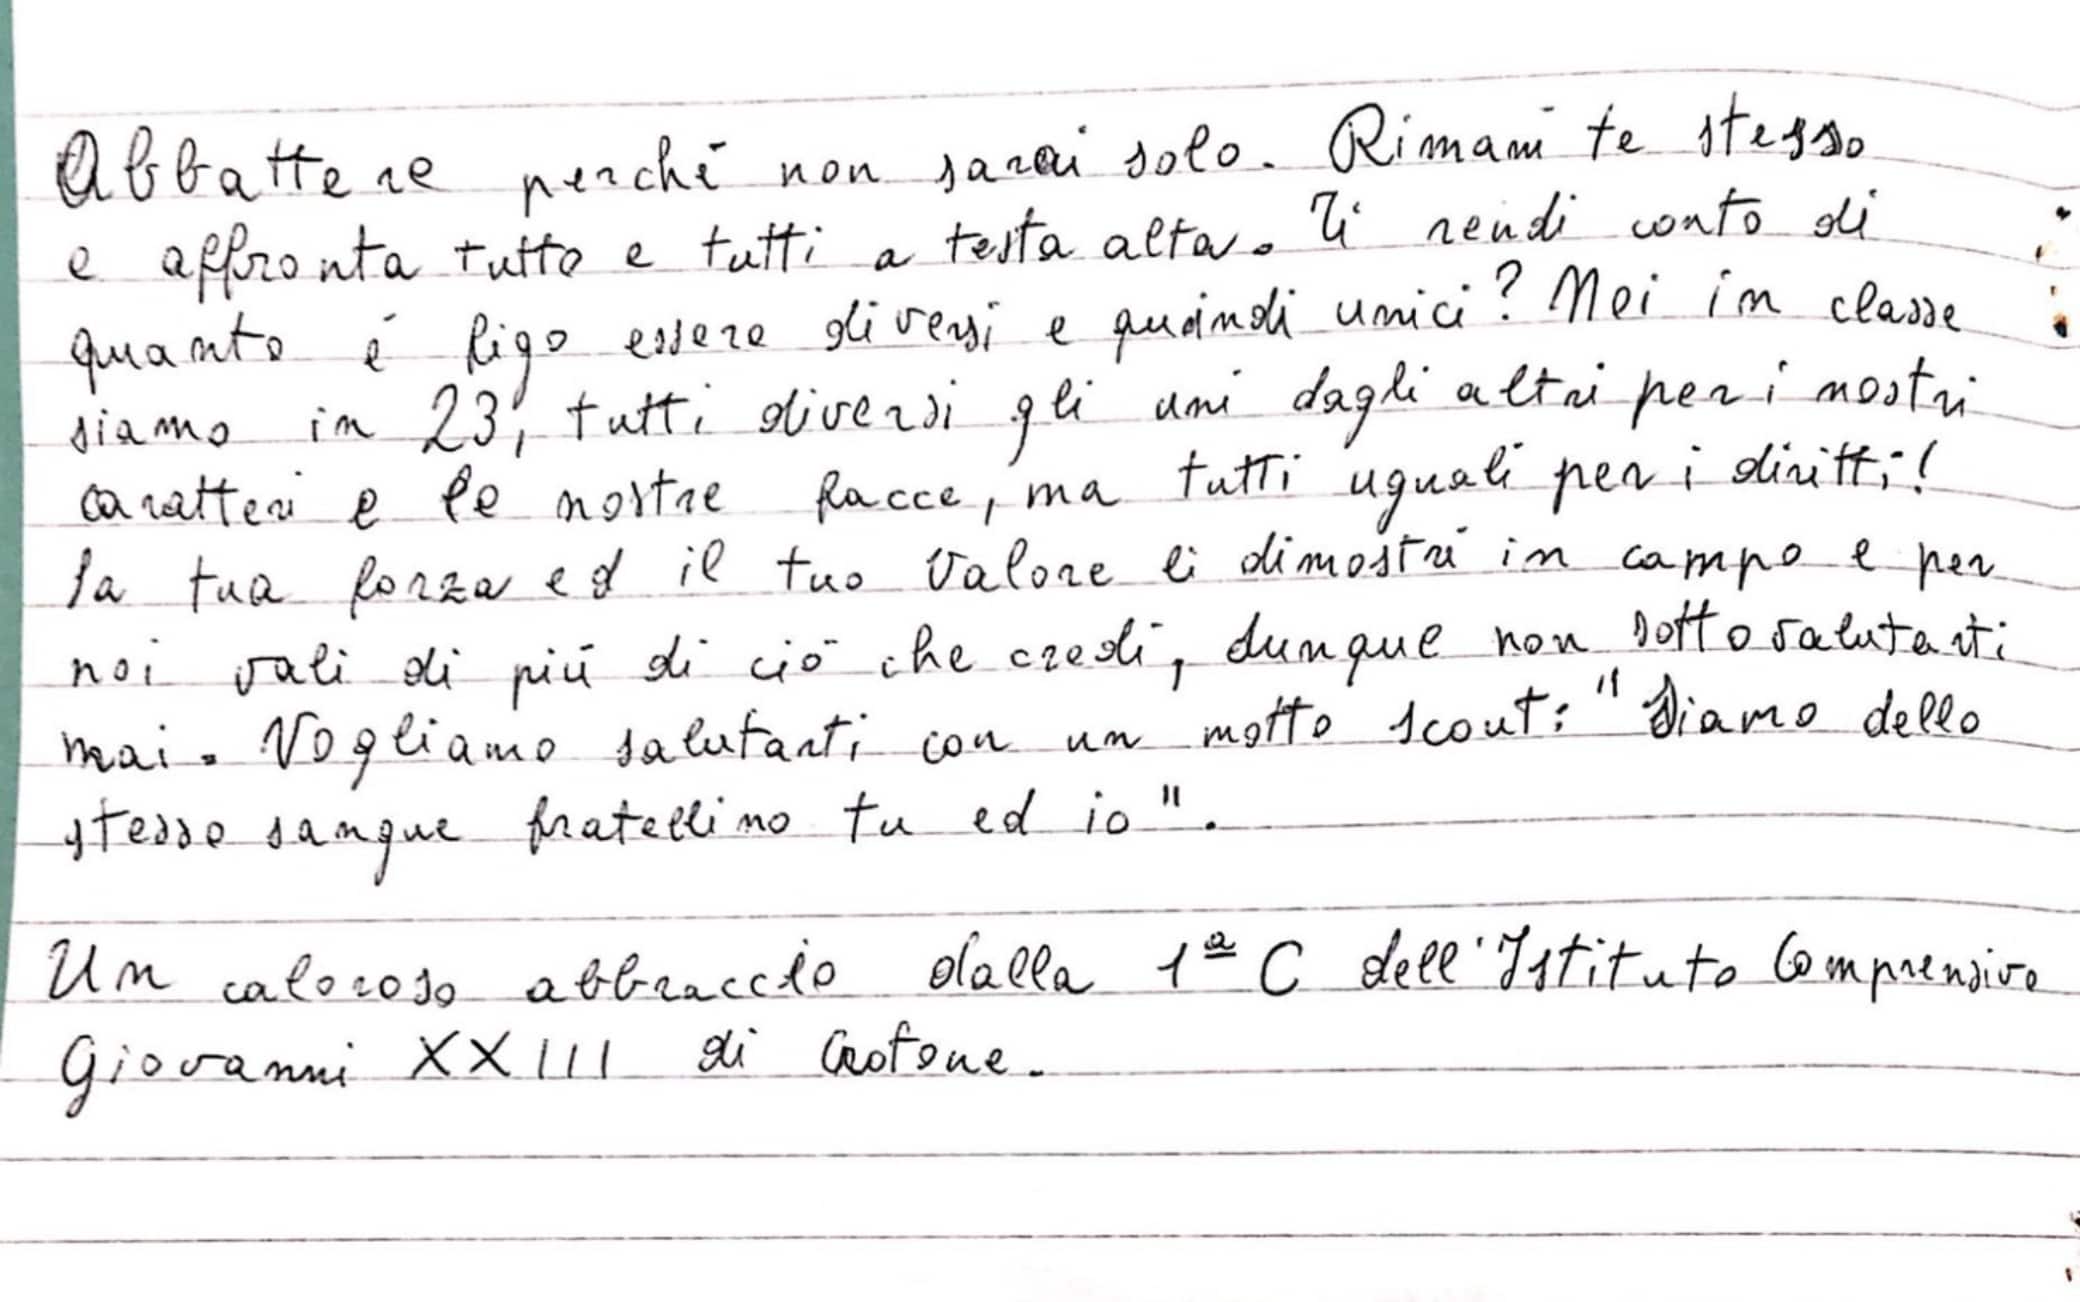 abbattere perché non sarai solo. Rimani te stesso
e affronta tutto e tutti a testa alta. Ti rendi conto di
quanto é figo essere diversi e quindi unici? Noi in classe
siamo in 23, tutti diversi gli uni dagli altri per i nostri
caratteri e le nostre facce, ma tutti uguali per i diritti!
la tua forza ed il tuo valore li dimostri in campo e per
noi vali di piú di ció che credi, dunque non sottovalutarti
mai. Vogliamo salutarti con un motto scout: "Siamo dello
stesso sangue fratellino tu ed io".
Un caloroso abbraccio dalla 1ª C dell'Istituto Comprensivo
Giovanni XXIII di Crotone.